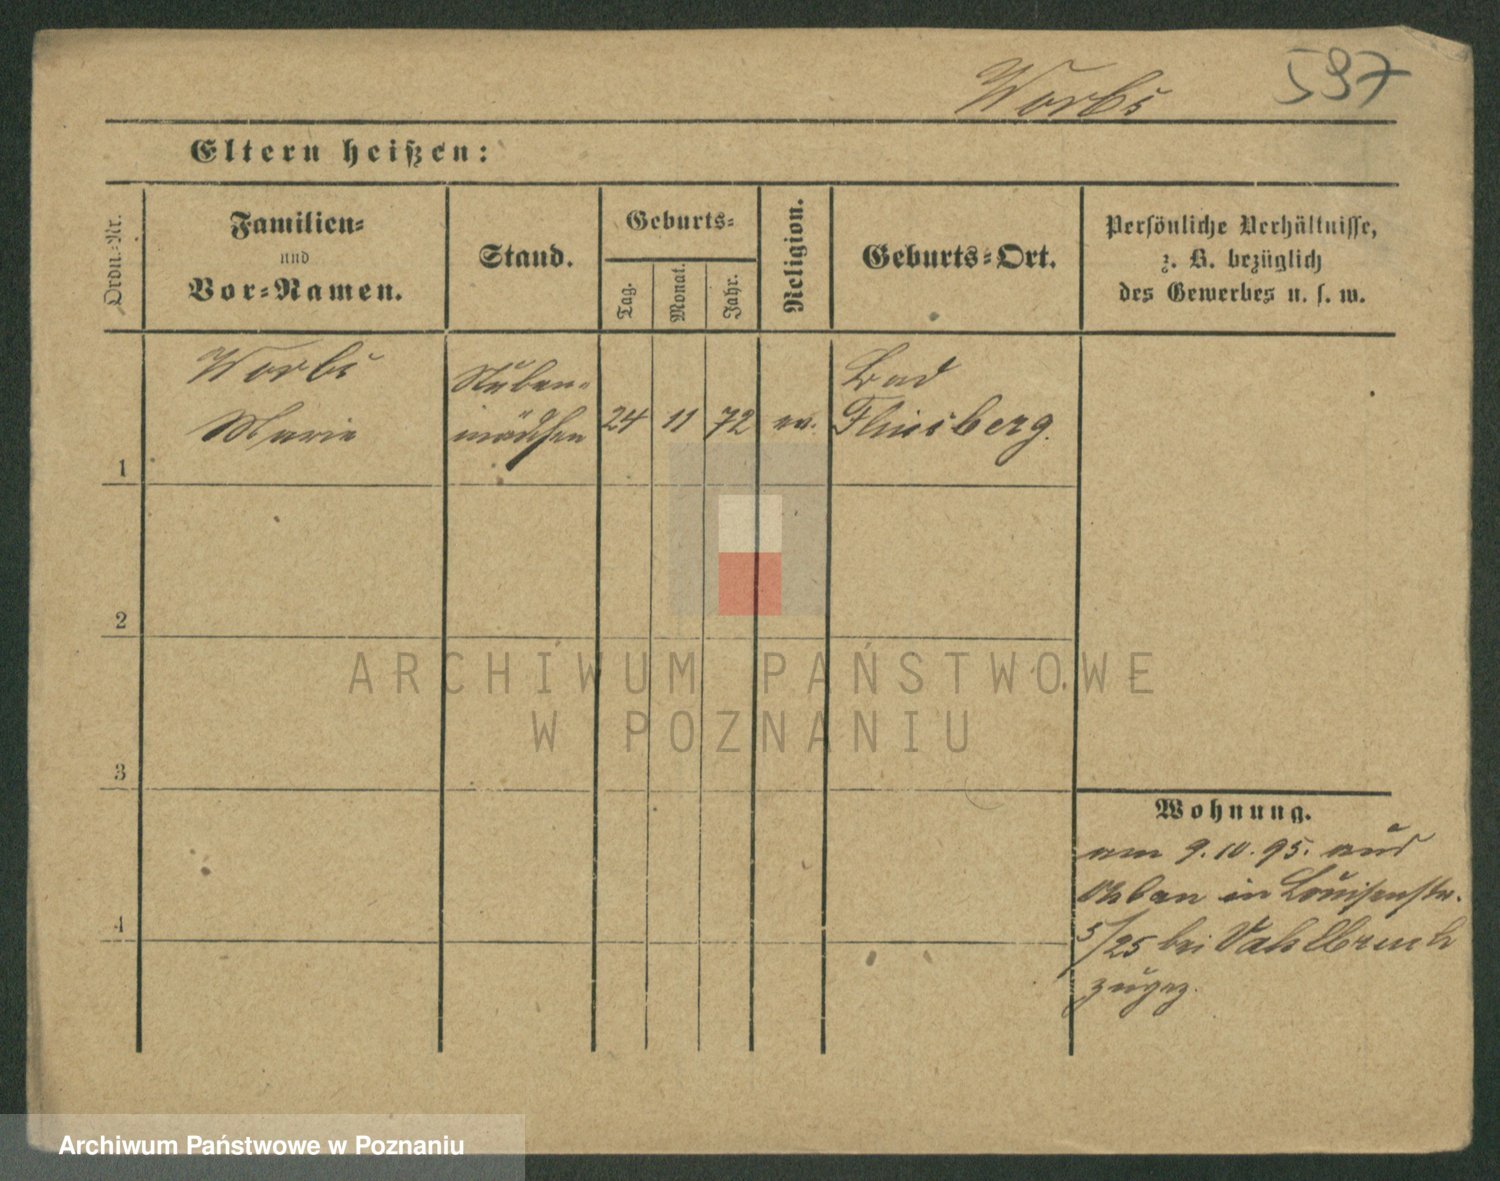 597
Worbs
Eltern heißen:
Ordn.-Nr.
Familien-
und
Vor-Namen.
Stand.
Geburts-
Tag.
Monat.
Jahr.
Religion.
Geburts-Ort.
Persönliche Verhältnisse,
z. B. bezüglich
des Gewerbes u. s. w.
1
Worbs
Marie
Stuben-
mädchen
24
11
72
ev.
Bad
Flinsberg.
2
3
4
Wohnung.
am 9. 10. 95. aus
Ohlau in Louisenstr.
5/25 bei Vahlbruch
zugez.
ARCHIWUM PAŃSTWOWE
W POZNANIU
Archiwum Państwowe w Poznaniu